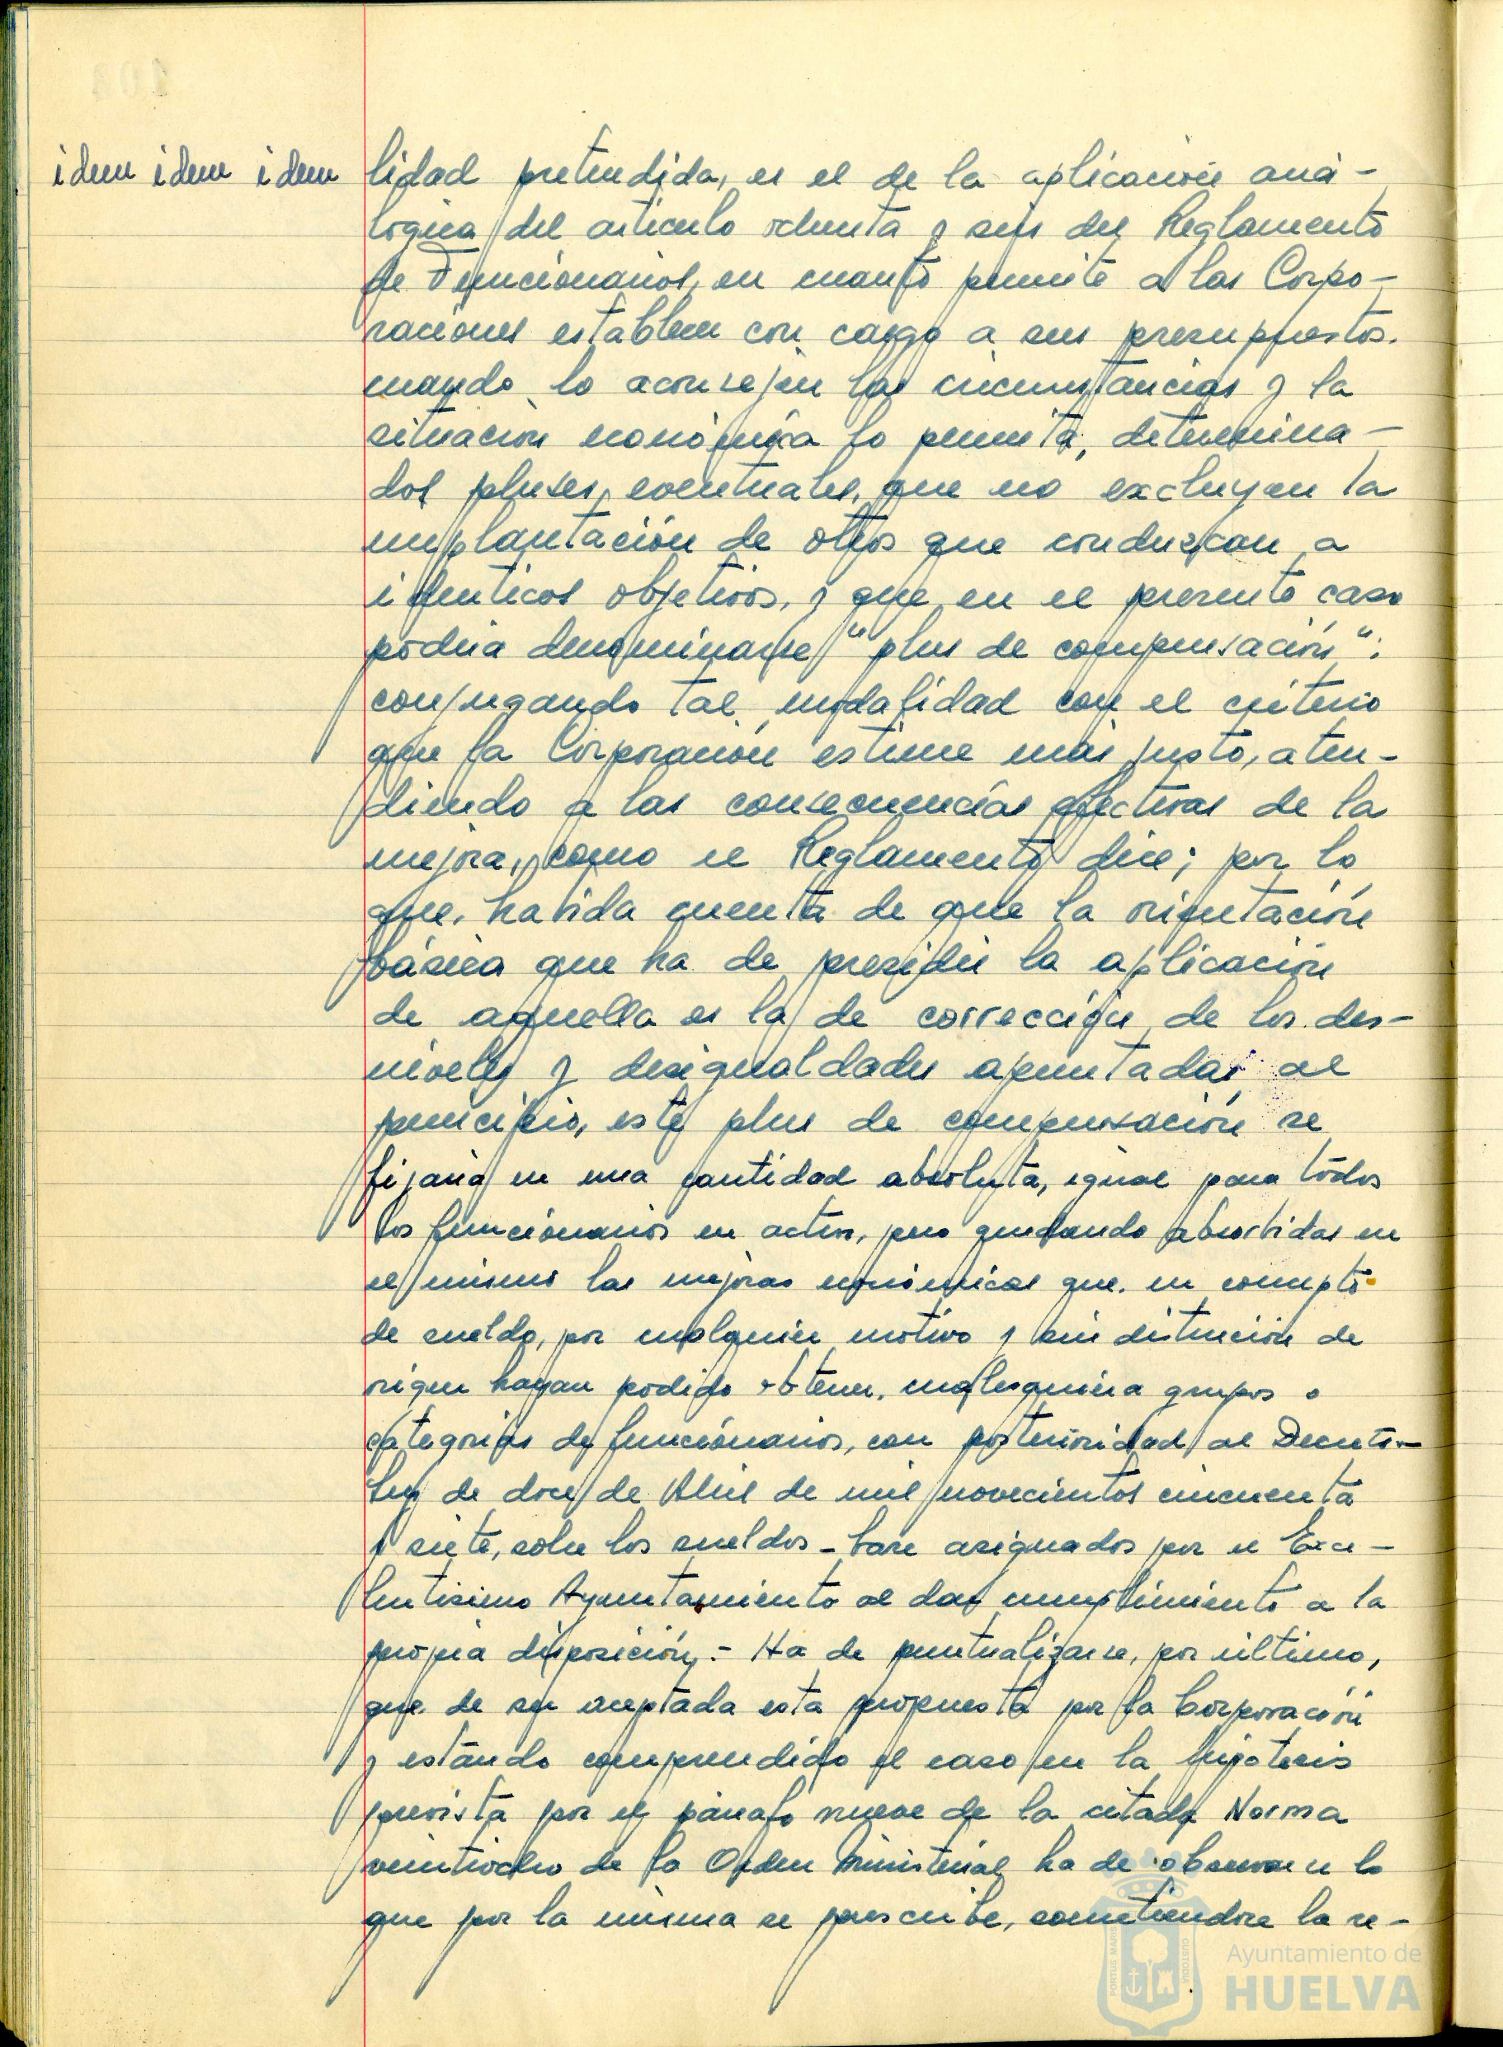 idem idem idem
lidad pretendida, es el de la aplicación aná-
lógica del artículo ochenta y seis del Reglamento
de Funcionarios, en cuanto permite a las Corpo-
raciones establecer con cargo a sus presupuestos.
cuando lo aconsejen las circunstancias y la
situación económica lo permita, determina-
dos pluses, eventuales, que no excluyen la
implantación de otros que conduzcan a
identicos objetivos, y que en el presente caso
podría denominarse "plus de compensación";
conjugando tal modalidad con el criterio
que la Corporación estime más justo, aten-
diendo a las consecuencias efectivas de la
mejora, como el Reglamento dice; por lo
que, habida cuenta de que la orientación
básica que ha de presidir la aplicación
de aquella es la de corrección de los des-
niveles y desigualdades apuntadas al
principio, este plus de compensación se
fijaría en una cantidad absoluta, igual para todos
los funcionarios en activo, pero quedando absorbidas en
el mismo las mejoras económicas que. en concepto
de sueldo, por cualquier motivo y sin distinción de
origen hayan podido obtener. cualesquiera grupos o
categorías de funcionarios, con posterioridad al Decreto-
Ley de doce de Abril de mil novecientos cincuenta
y siete, sobre los sueldos-base asignados por el Exce-
lentísimo Ayuntamiento al dar cumplimiento a la
propia disposición.- Ha de puntualizarse, por último,
que de ser aceptada esta propuesta por la Corporación
y estando comprendido el caso en la hipótesis
prevista por el párrafo nueve de la citada Norma
veintiocho de la Orden Ministerial ha de observarse lo
que por la misma se prescribe, sometiendose la re-
Ayuntamiento de
HUELVA